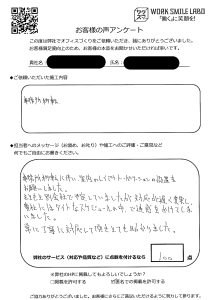 WORK SMILE LABO
「働く」に笑顔を!
ワクスマ
お客様の声アンケート
この度は弊社でオフィスづくりをご依頼いただき、誠にありがとうございました。
お客様満足度向上のため、お客様の本音をお聞かせいただければ幸いです。
貴社名:
お名前:
●ご依頼いただいた施工内容
事務所移転
●担当者へのメッセージ(お褒め、お叱り)や施工へのご評価・ご意見など
何でもご自由にお書きください。
事務所移転に伴い
レイアウト・パーテーションの設置を
お願いしました。
もともと別会社で予定していましたが対応が遅く変更し、
タイトなスケジュールの中で
ました。
常に丁寧に対応して頂きとても助かりました。
弊社のサービス(対応や品質など)に点数を付けるなら
100 点
※弊社のHPに掲載してもよろしいでしょうか?
□掲載を許可する ☑匿名での掲載を許可する
ご協力ありがとうございました。お客様にさらにご満足いただけるように努力してまいります。